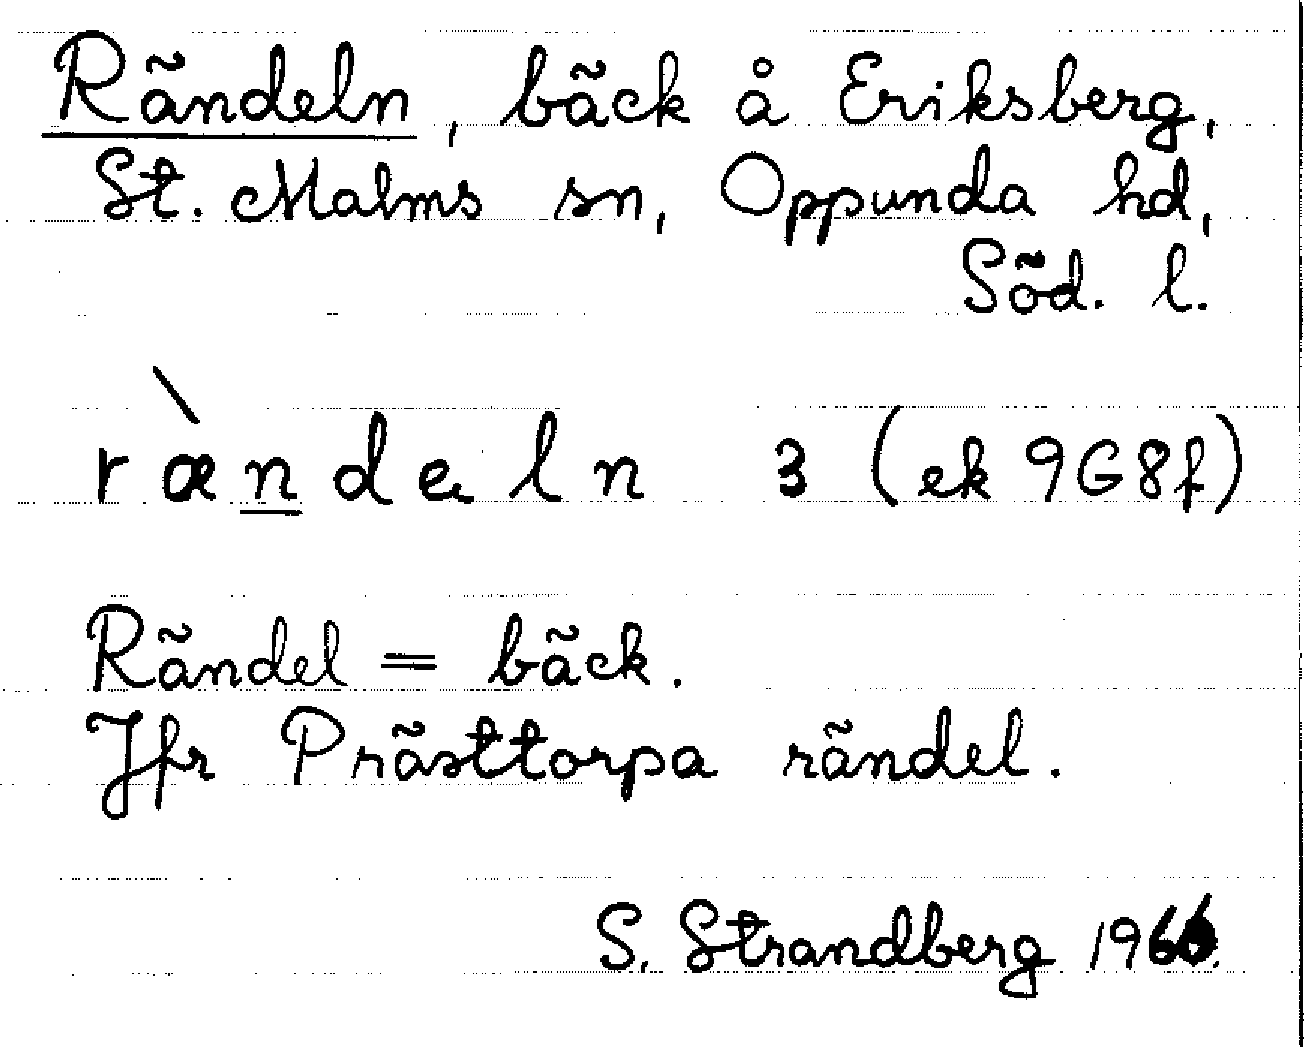 Rändeln, bäck å Eriksberg,
St. Malms sn, Oppunda hd,
Söd. l.
ràndeln 3 (ek 9G8f)
Rändel = bäck.
Jfr Prästtorpa rändel.
S. Strandberg 1966.